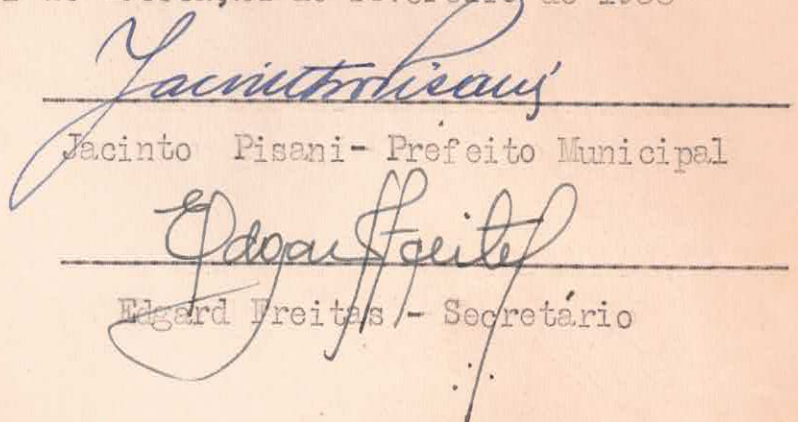 de fevereiro de
Jacintho Pisani
Jacinto Pisani- Prefeito Municipal
Edgard Freitas
Edgard Freitas - Secretário